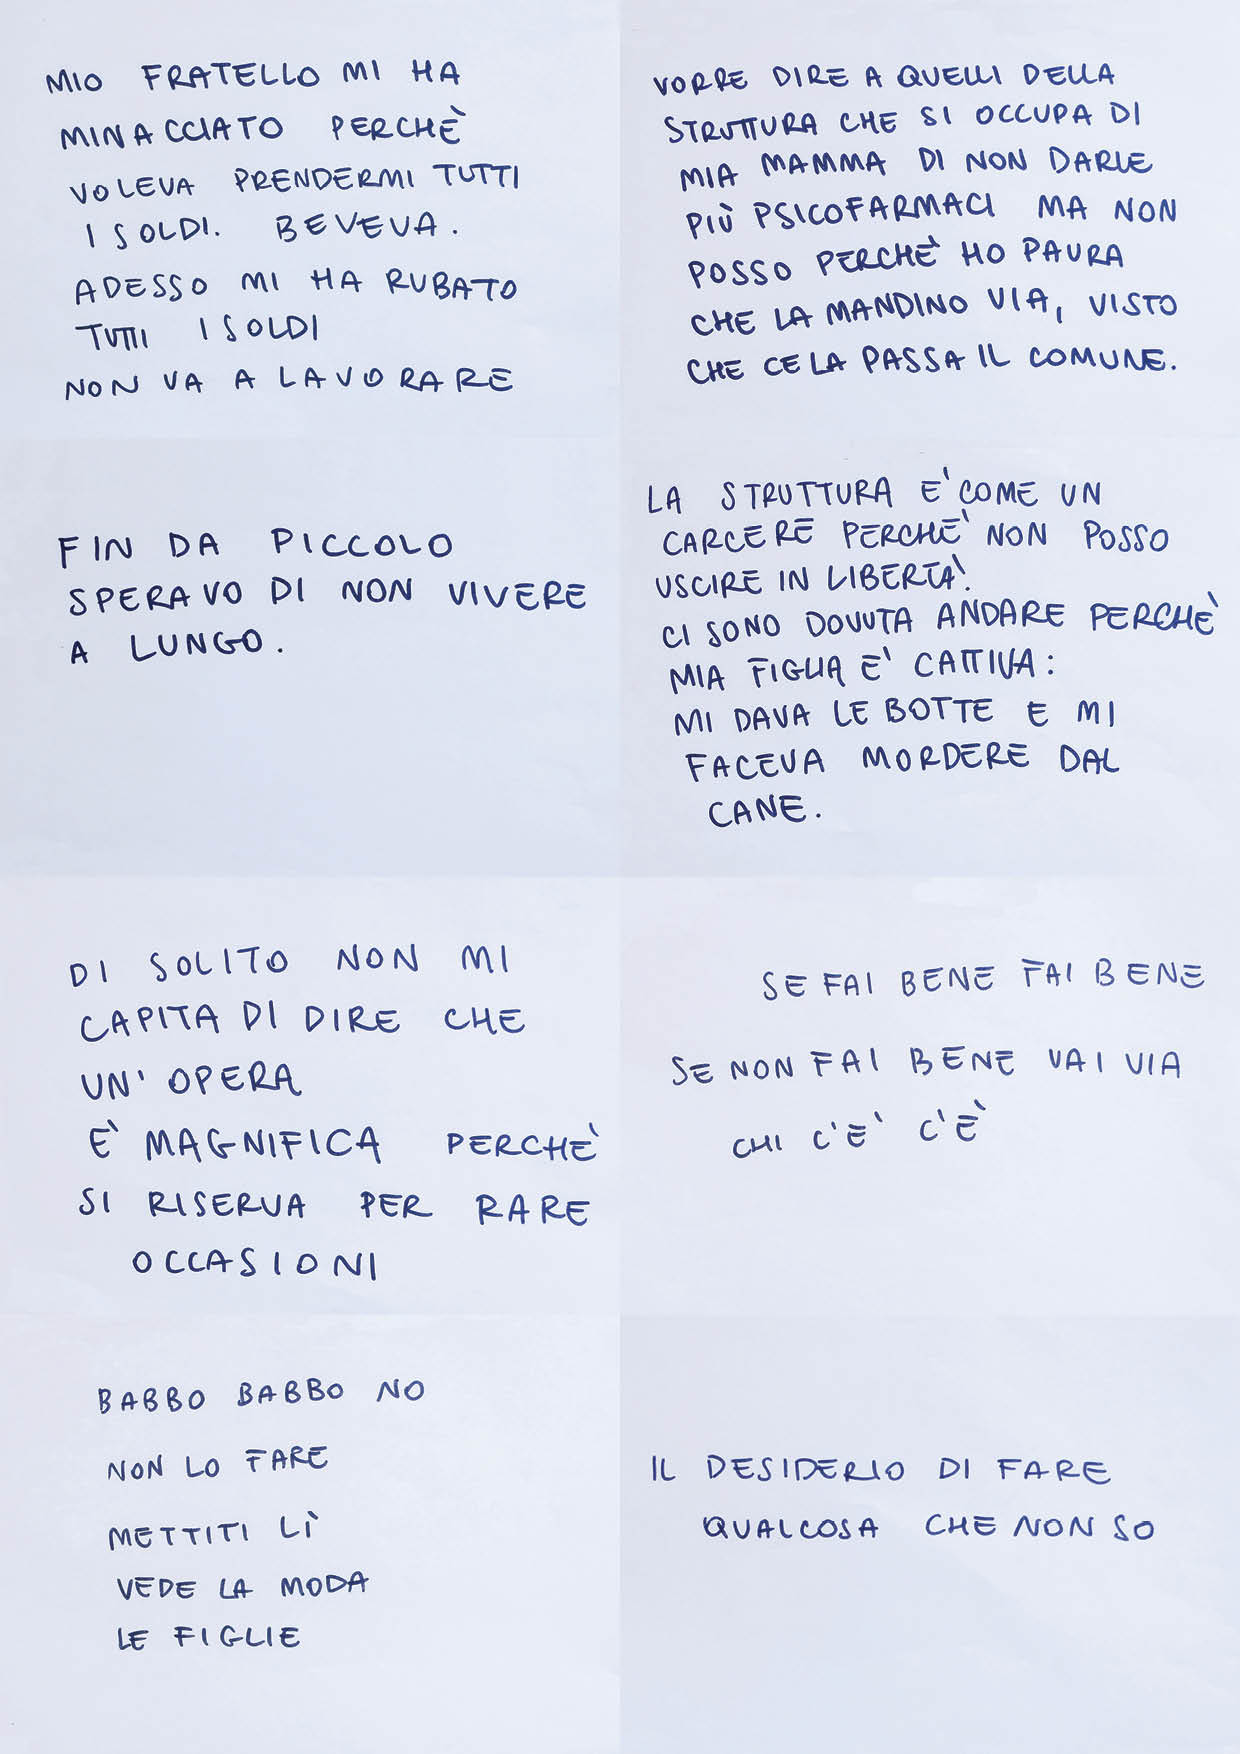 MIO FRATELLO MI HA
MINACCIATO PERCHÈ
VOLEVA PRENDERMI TUTTI
I SOLDI. BEVEVA.
ADESSO MI HA RUBATO
TUTTI I SOLDI
NON VA A LAVORARE
VORRE DIRE A QUELLI DELLA
STRUTTURA CHE SI OCCUPA DI
MIA MAMMA DI NON DARLE
PIÙ PSICOFARMACI MA NON
POSSO PERCHÈ HO PAURA
CHE LA MANDINO VIA, VISTO
CHE CE LA PASSA IL COMUNE.
FIN DA PICCOLO
SPERAVO DI NON VIVERE
A LUNGO.
LA STRUTTURA E' COME UN
CARCERE PERCHE' NON POSSO
USCIRE IN LIBERTA'.
CI SONO DOVUTA ANDARE PERCHE'
MIA FIGLIA E' CATTIVA:
MI DAVA LE BOTTE E MI
FACEVA MORDERE DAL
CANE.
DI SOLITO NON MI
CAPITA DI DIRE CHE
UN' OPERA
E' MAGNIFICA PERCHE'
SI RISERVA PER RARE
OCCASIONI
SE FAI BENE FAI BENE
SE NON FAI BENE VAI VIA
CHI C'E' C'È
BABBO BABBO NO
NON LO FARE
METTITI LÌ
VEDE LA MODA
LE FIGLIE
IL DESIDERIO DI FARE
QUALCOSA CHE NON SO